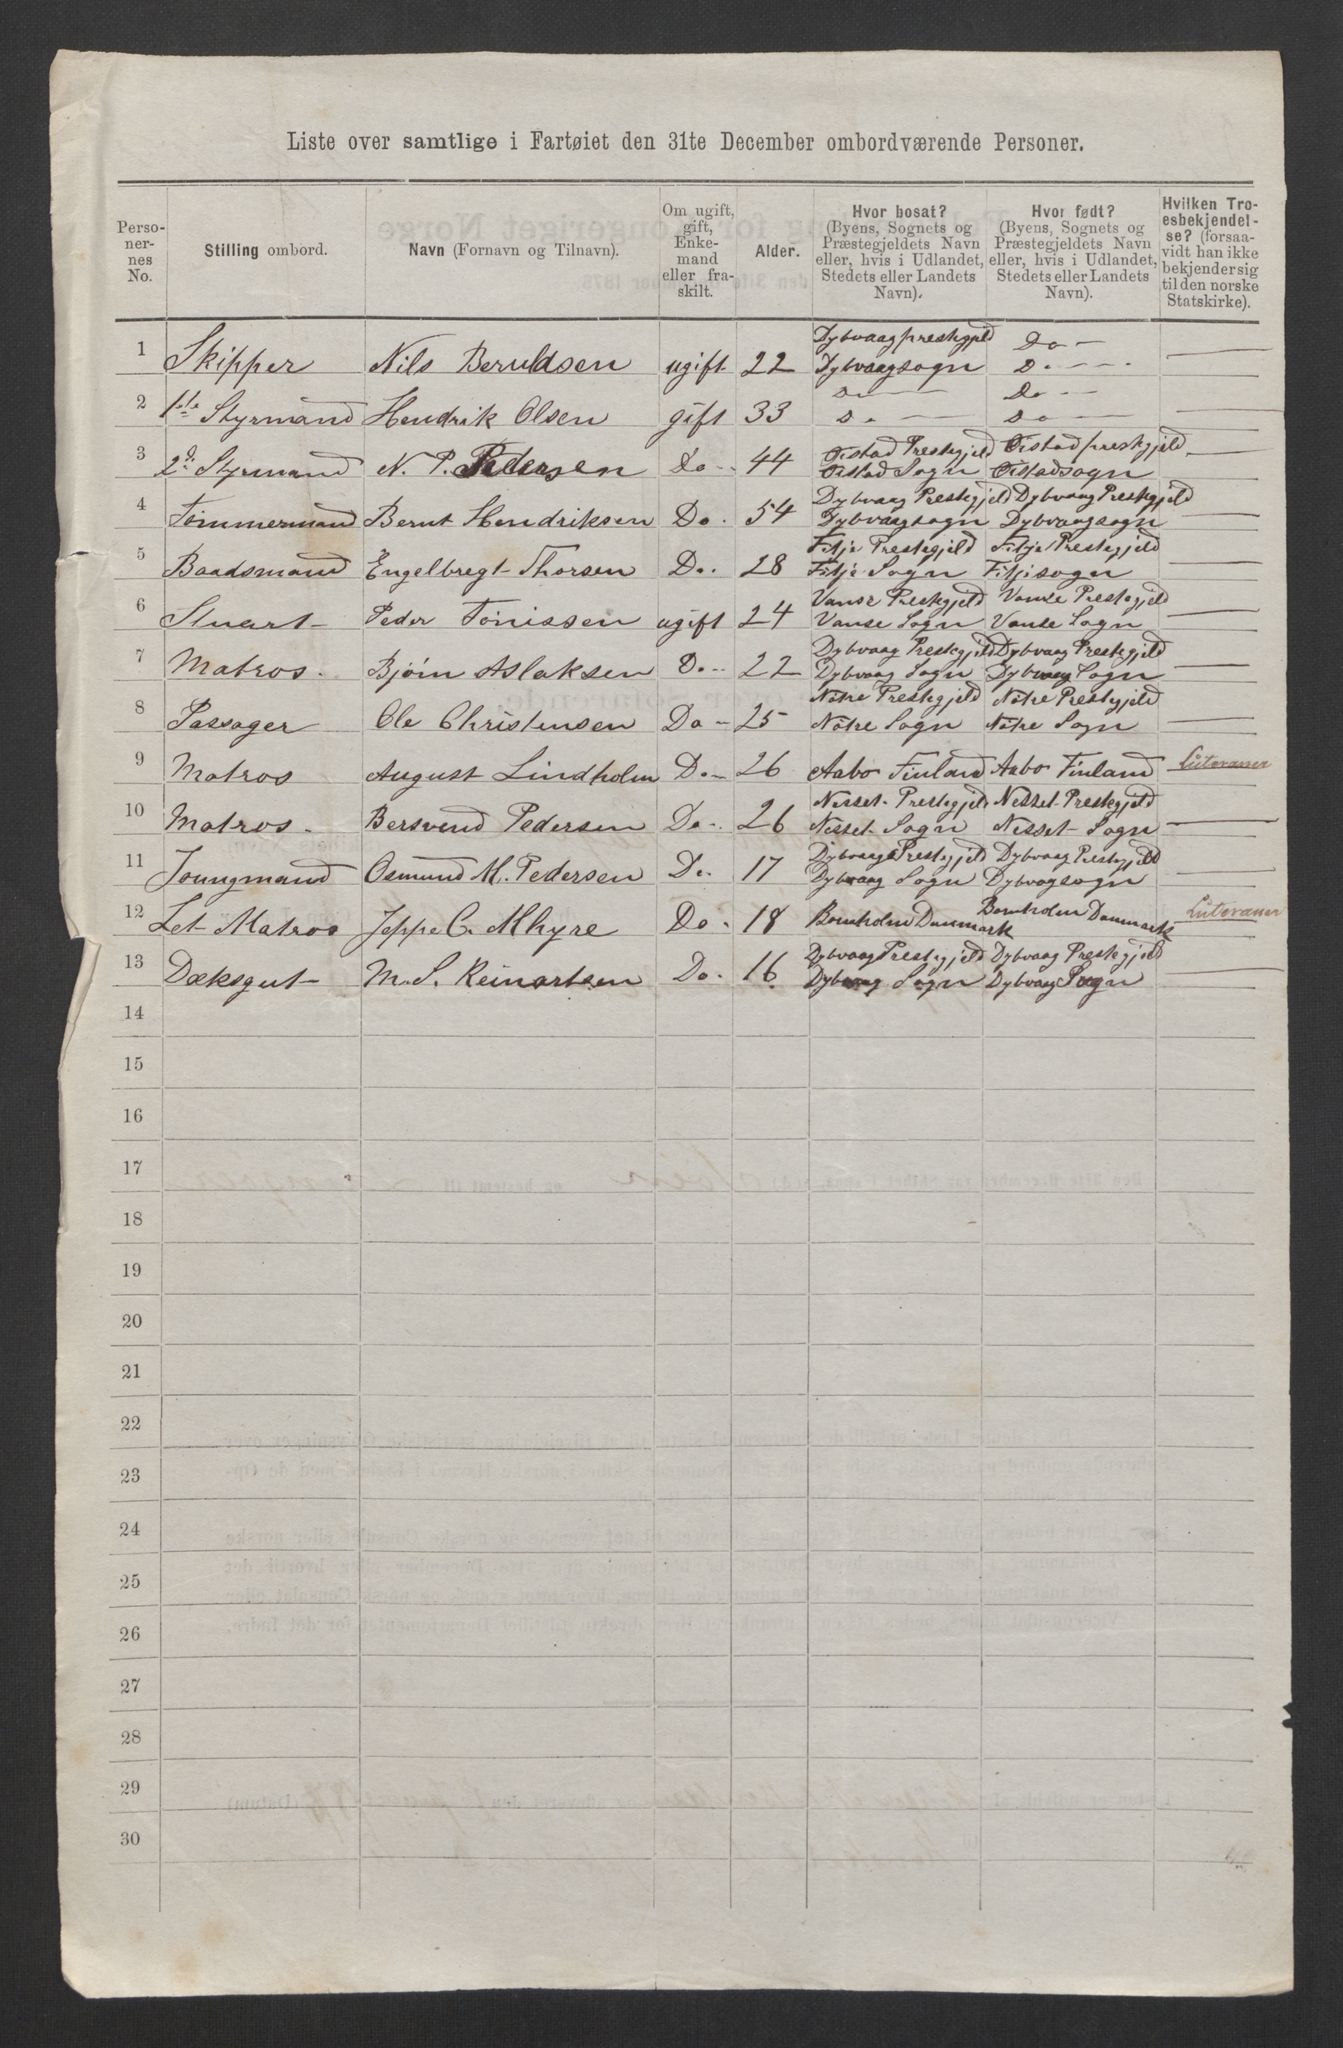 Liste over samtlige i Fartøiet den 31te December ombordværende Personer.
Perso-
ner-
nes
No.
Stilling ombord.
Navn (Fornavn og Tilnavn).
Om ugift,
gift,
Enke-
mand
eller fra-
skilt.
Alder.
Hvor bosat?
(Byens, Sognets og
Præstegjeldets Navn
eller, hvis i Udlandet,
Stedets eller Landets
Navn).
Hvor født?
(Byens, Sognets og
Præstegjeldets Navn
eller, hvis i Udlandet,
Stedets eller Landets
Navn).
Hvilken Tro-
esbekjendel-
se? (forsaa-
vidt han ikke
bekjender sig
til den norske
Statskirke).
1 Skipper Nils Beruldsen ugift 22 Dybvaag prestegjeld Dybvaagsogn Do - Do -
2 1ste Styrmand Hendrik Olsen gift 33 Do - Do - Do - Do -
3 2d. Styrmand N. P. Pedersen Do - 44 Øistad Prestegjeld Øistad Sogn Øistad prestegjeld Øistadsogn
4 Tømmermand Bernt Hendriksen Do. 54 Dybvaag Prestegjeld Dybvaagsogn Dybvaag Prestegjeld Dybvaagsogn
5 Baadsmand Engelbregt Thorsen Do. 28 Fitje Prestegjeld Fitje Sogn Fitje Prestegjeld Fitjisogn
6 Stuart Peder Tønissen ugift 24 Vanse Prestegjeld Vanse Sogn Vanse Prestegjeld Vanse Sogn
7 Matros. Bjørn Aslaksen Do - 22 Dybvaag Prestegjeld Dybvaag Sogn Dybvaag Prestegjeld Dybvaag Sogn
8 Passager Ole Christensen Do - 25 Nøtre Prestegjeld Nøtre Sogn Nøtre Prestegjeld Nøtre Sogn
9 Matros August Lindholm Do - 26 Aabo Finland Aabo Finland Luteraner
10 Matros. Bersvend Pedersen Do - 26 Nesset Prestegjeld Nesset Sogn Nesset Prestegjeld Nesset Sogn
11 Joungmand Osmund M. Pedersen Do. 17 Dybvaag Prestegjeld Dybvaag Sogn Dybvaag Prestegjeld Dybvagsogn
12 Let Matros Jeppe C. Mhyre Do - 18 Bornholm Danmark Bornholm Danmark Luteraner
13 Dæksgut M. S. Reinartsen Do. 16 Dybvaag Prestegjeld Dybvaag Sogn Dybvaag Prestegjeld Dybvaag Sogn
14
15
16
17
18
19
20
21
22
23
24
25
26
27
28
29
30